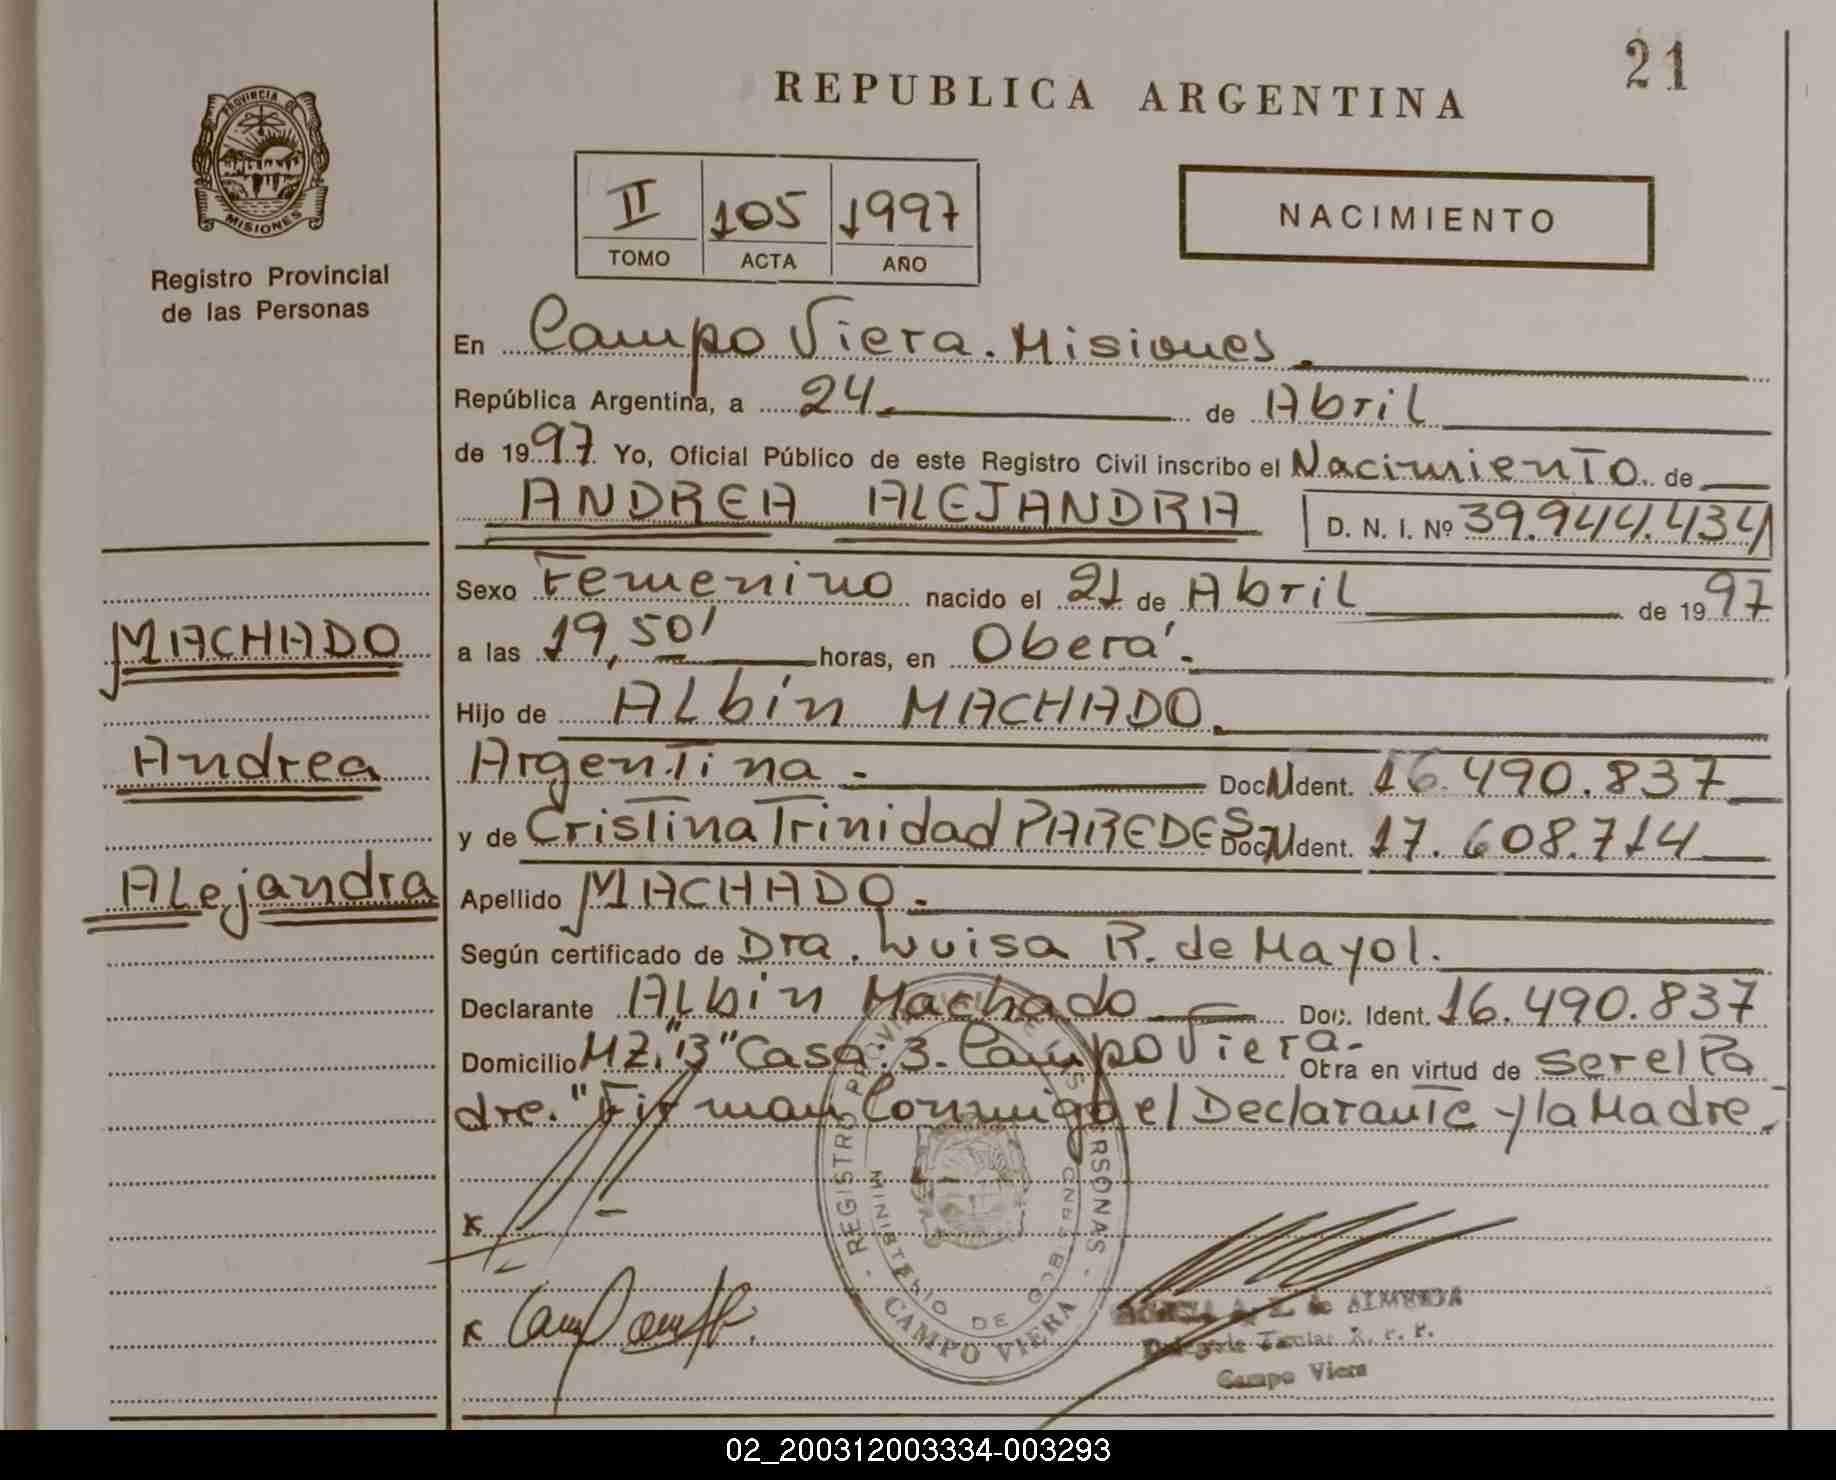 21
REPUBLICA ARGENTINA
PROVINCIA DE
MISIONES
Registro Provincial
de las Personas
II 105 1997
TOMO ACTA AÑO
NACIMIENTO
En Campo Viera. Misiones.
República Argentina, a 24 de Abril
de 1997 Yo, Oficial Público de este Registro Civil inscribo el Nacimiento de
ANDREA ALEJANDRA D. N. I. Nº 39.944.434
Sexo Femenino nacido el 21 de Abril de 1997
MACHADO
a las 19,50' horas, en Oberá.
Hijo de Albín MACHADO.
Andrea
Argentina.- Doc. Ident. 16.490.837
y de Cristina Trinidad PAREDES Doc. Ident. 17.608.714
Alejandra
Apellido MACHADO.
Según certificado de Dra. Luisa R. de Mayol.
Declarante Albín Machado Doc. Ident. 16.490.837
Domicilio MZ. "B" Casa: 3. Campo Viera. Obra en virtud de ser el Pa
dre. "Firman Conmigo el Declarante y la Madre.
x
x
REGISTRO PROVINCIAL DE LAS PERSONAS
MINISTERIO DE GOBIERNO
CAMPO VIERA
de ALMEIDA
Titular R. P. P.
Campo Viera
02_200312003334-003293